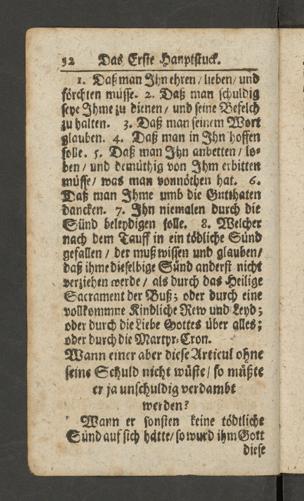 32 Das Erste Hauptstuck.
1. Daß man Ihn ehren / lieben / und
förchten müsse. 2. Daß man schuldig
seye Ihme zu dienen / und seine Befelch
zu halten. 3. Daß man seinem Wort
glauben. 4. Daß man in Ihn hoffen
solle. 5. Daß man Ihn anbetten / lo-
ben / und demüthig von Ihm erbitten
müsse / was man vonnöthen hat. 6.
Daß man Ihme umb die Gutthaten
dancken. 7. Ihn niemalen durch die
Sünd beleydigen solle. 8. Welcher
nach dem Tauff in ein tödliche Sünd
gefallen / der muß wissen und glauben /
daß ihme dieselbige Sünd anderst nicht
verziehen werde / als durch das Heilige
Sacrament der Buß; oder durch eine
vollkommne Kindliche Rew und Leyd;
oder durch die Liebe Gottes über alles;
oder durch die Martyr-Cron.
Wann einer aber diese Articul ohne
seine Schuld nicht wüste / so müßte
er ja unschuldig verdambt
werden?
Wann er sonsten keine tödtliche
Sünd auf sich hätte / so wurd ihm Gott
diese